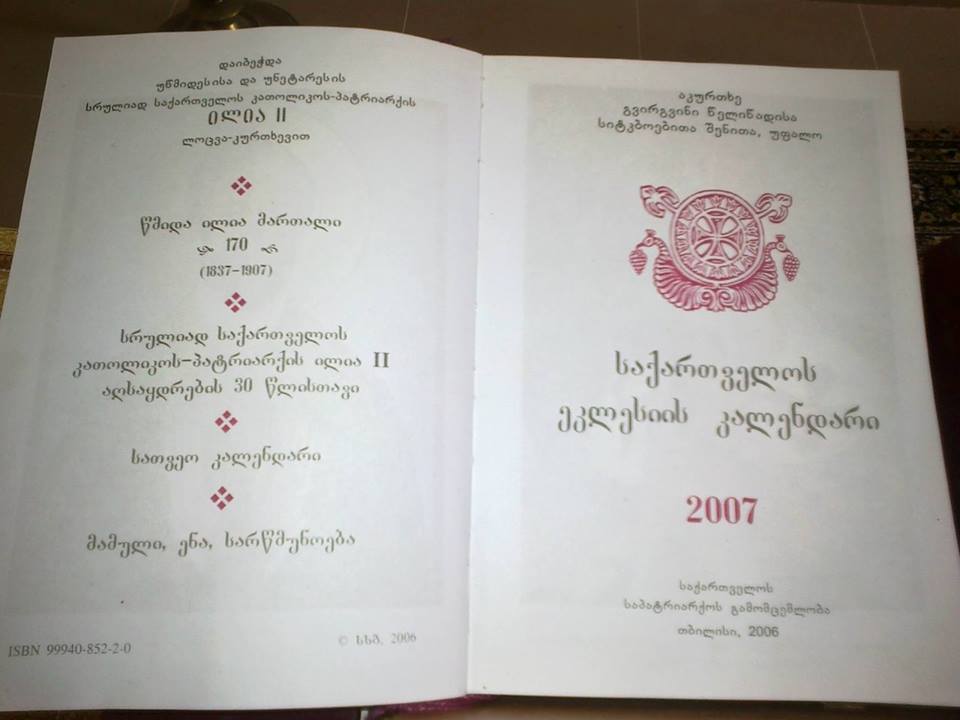 დაიბეჭდა
უწმიდესისა და უნეტარესის
სრულიად საქართველოს კათოლიკოს-პატრიარქის
ილია II
ლოცვა-კურთხევით
წმიდა ილია მართალი
170
(1837-1907)
სრულიად საქართველოს
კათოლიკოს-პატრიარქის ილია II
აღსაყდრების 30 წლისთავი
სათვეო კალენდარი
მამული, ენა, სარწმუნოება
ISBN 99940-852-2-0
© სსგ, 2006
აკურთხე
გვირგვინი წელიწადისა
სიტკბოებითა შენითა, უფალო
საქართველოს
ეკლესიის კალენდარი
2007
საქართველოს
საპატრიარქოს გამომცემლობა
თბილისი, 2006